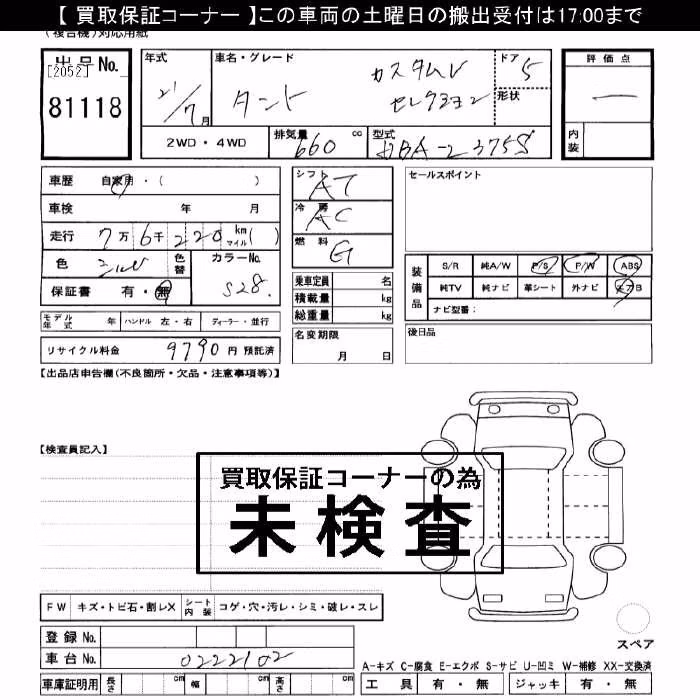 【 買取保証コーナー 】この車両の土曜日の搬出受付は17:00まで
(複合機)対応用紙
出品No.
[2052]
81118
年式 車名・グレード ドア 評価点
21/7月 タント カスタムV セレクション 5 形状 ー
2WD・4WD 排気量 660 cc 型式 DBA-L375S 内装
車歴 自家用・( )
車検 年 月
走行 7万6千220 km マイル( )
色 シルバ 色替 カラーNo. S28
保証書 有・無
モデル年式 年 ハンドル 左・右 ディーラー・並行
リサイクル料金 9790円 預託済
シフト AT
冷房 AC
燃料 G
乗車定員 名
積載量 kg
総重量 kg
名変期限
月 日
セールスポイント
装備品 S/R 純A/W P/S P/W ABS
純TV 純ナビ 革シート 外ナビ エアB
ナビ型番:
後日品
【出品店申告欄(不良箇所・欠品・注意事項等)】
【検査員記入】
買取保証コーナーの為
未検査
FW キズ・トビ石・割レX シート内装 コゲ・穴・汚レ・シミ・破レ・スレ
スペア
登録No.
車台No. 0222102
A-キズ C-腐食 E-エクボ S-サビ U-凹ミ W-補修 XX-交換済
車庫証明用 長さ cm 幅 cm 高さ cm 工具 有・無 ジャッキ 有・無